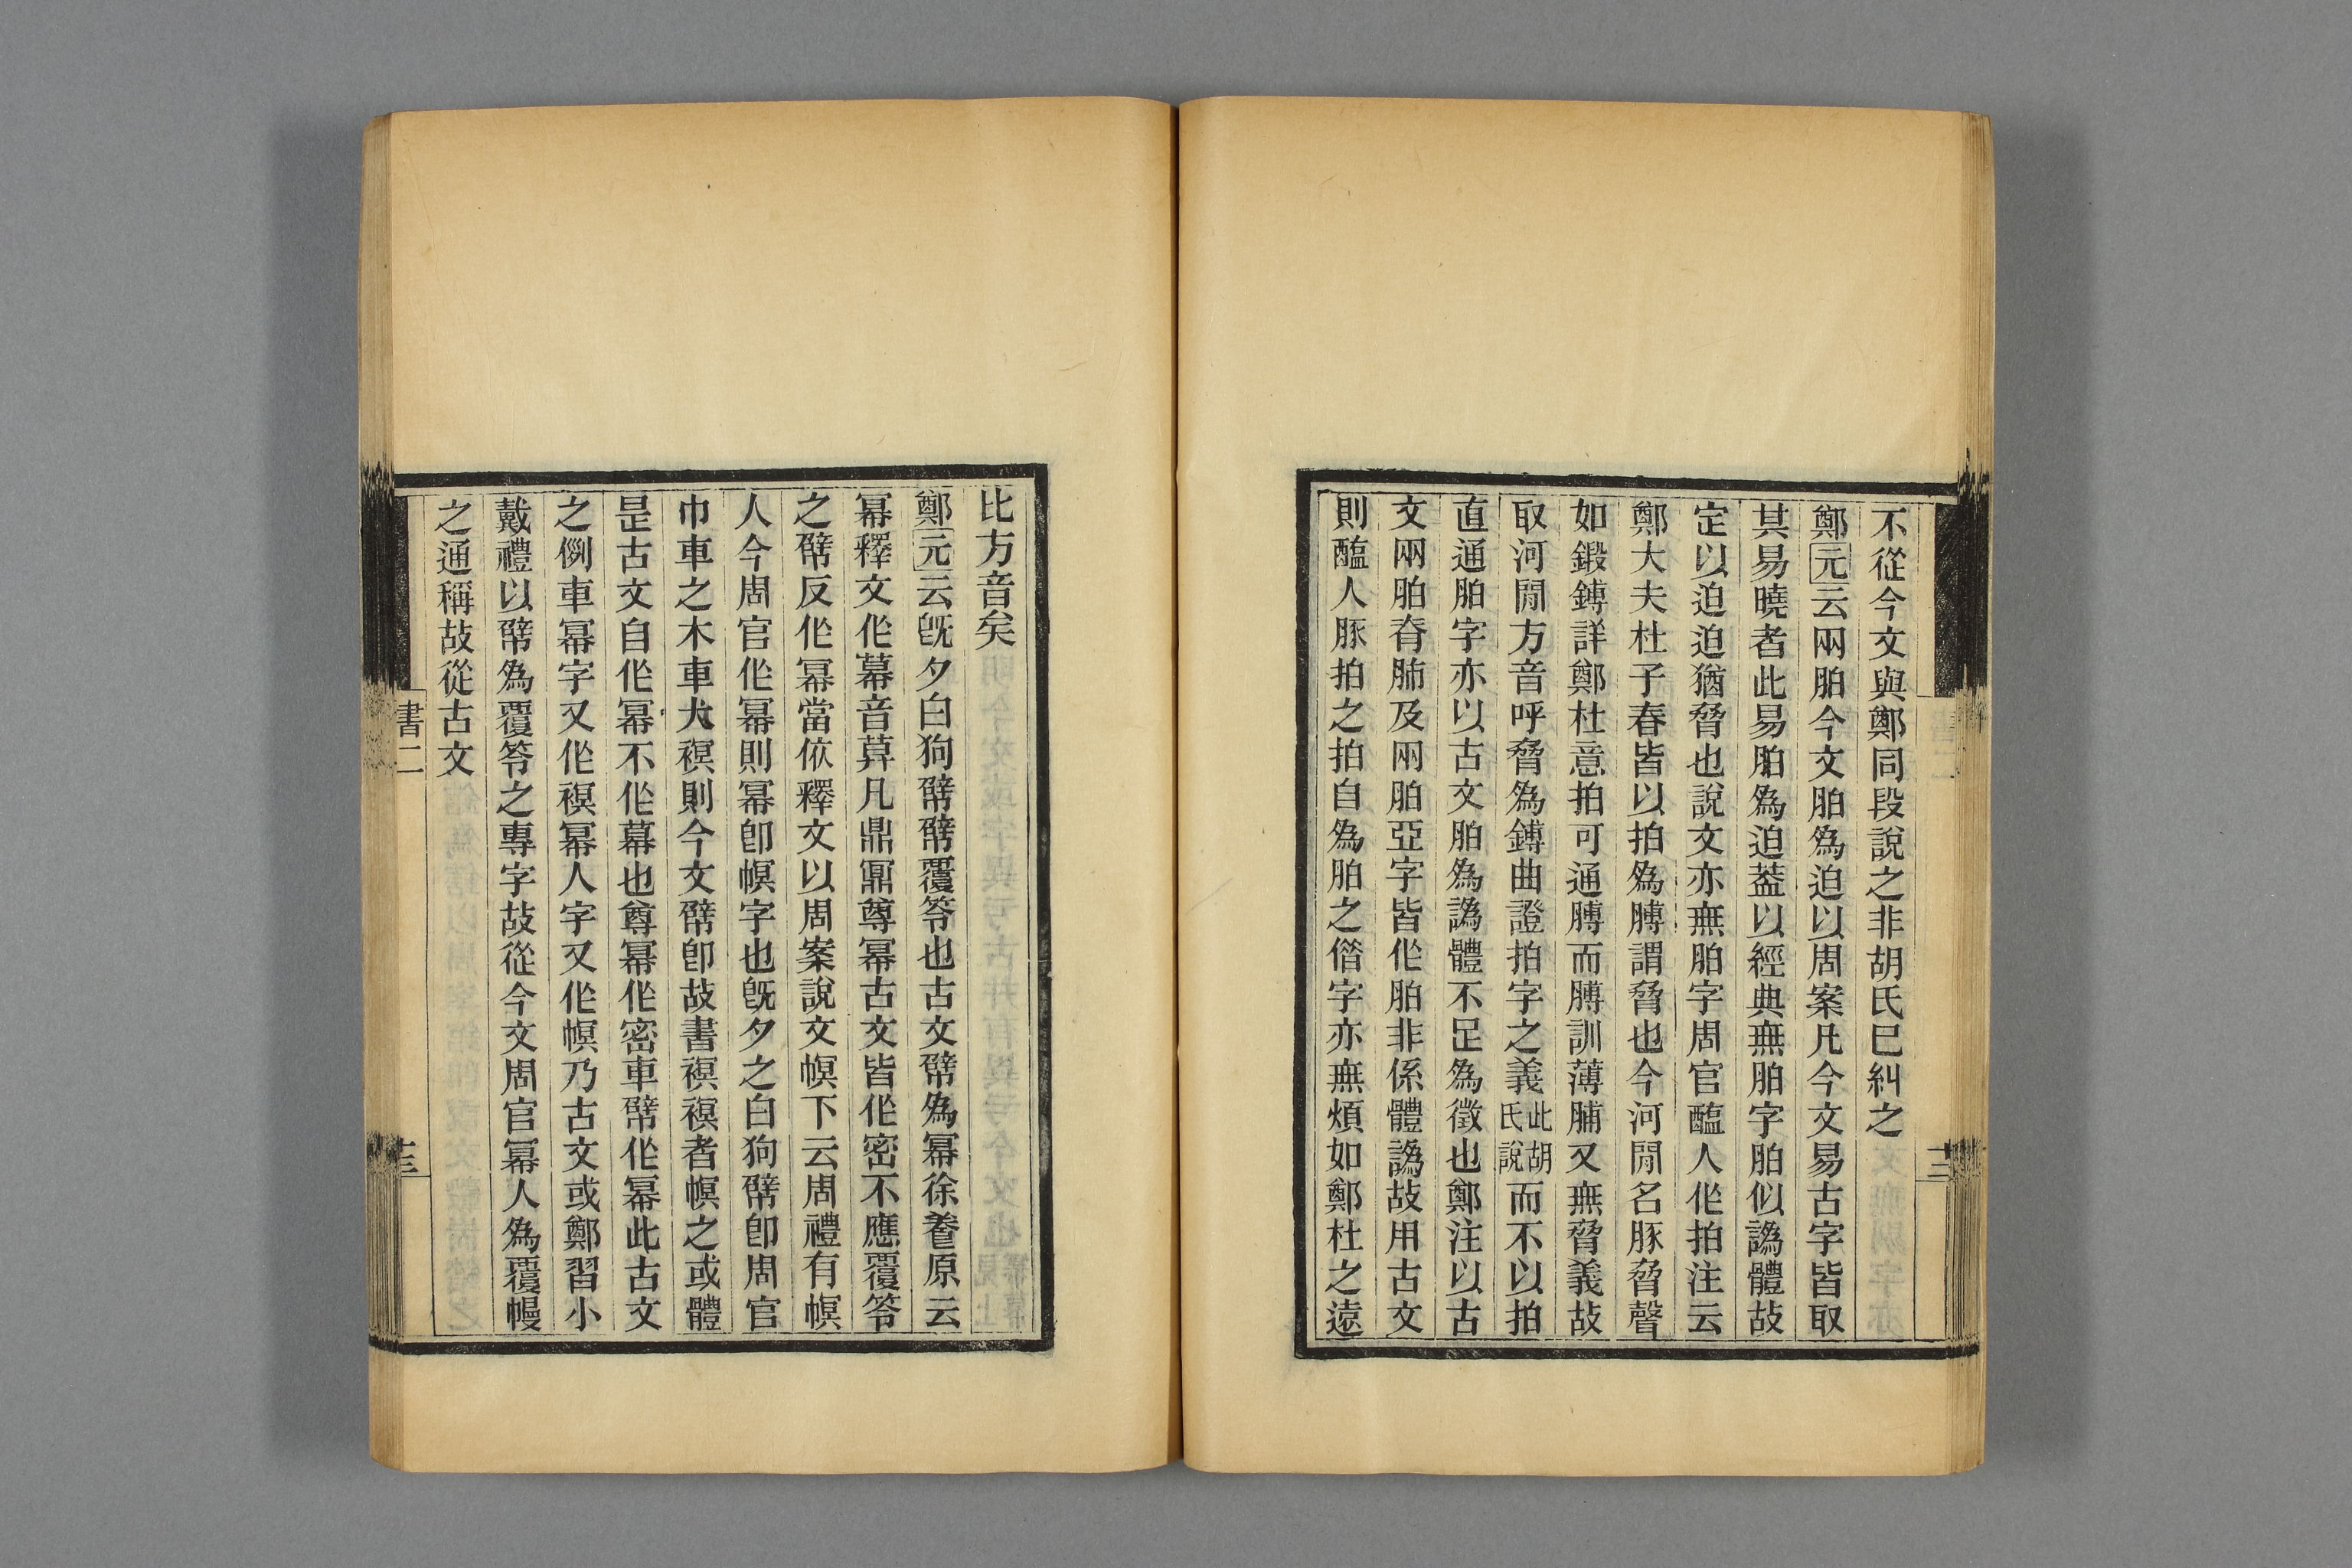 不從今文與鄭同段說之非胡氏巳糾之
鄭元云兩胉今文胉為迫以周案凡今文易古字皆取
其易曉者此易胉為迫葢以經典無胉字胉似譌體故
定以迫迫猶脅也說文亦無胉字周官醢人作拍注云
鄭大夫杜子春皆以拍為膊謂脅也今河閒名豚脅聲
如鍛鎛詳鄭杜意拍可通膊而膊訓薄脯又無脅義故
取河閒方音呼脅為鎛曲證拍字之義此胡氏說而不以拍
直通胉字亦以古文胉為譌體不足為徵也鄭注以古
文兩胉脊肺及兩胉亞字皆作胉非係體譌故用古文
則醢人豚拍之拍自為胉之偕字亦無煩如鄭杜之遠
比方音矣
鄭元云旣夕白狗幦幦覆笭也古文幦為冪徐養原云
冪釋文作幕音莫凡鼎鼏尊冪古文皆作密不應覆笭
之幦反作冪當依釋文以周案說文幎下云周禮有幎
人今周官作冪則冪卽幎字也旣夕之白狗幦卽周官
巾車之木車犬𧜀則今文幦卽故書𧜀𧜀者幎之或體
是古文自作冪不作幕也尊冪作密車幦作冪此古文
之例車冪字又作𧜀冪人字又作幎乃古文或鄭習小
戴禮以幦為覆笭之專字故從今文周官冪人為覆幔
之通稱故從古文
書二
十三